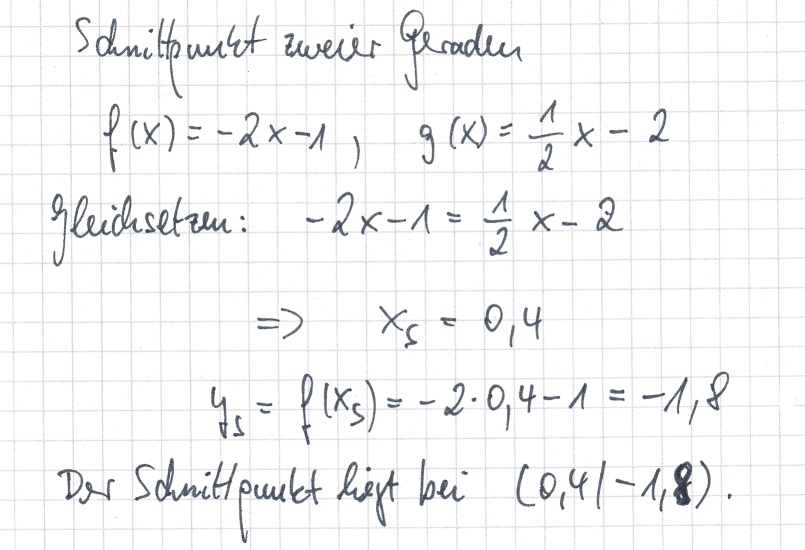 Schnittpunkt zweier Geraden
f(x) = -2x-1, g(x) = 1/2 x - 2
Gleichsetzen: -2x-1 = 1/2 x - 2
=> xₛ = 0,4
yₛ = f(xₛ) = -2·0,4-1 = -1,8
Der Schnittpunkt liegt bei (0,4/-1,8).